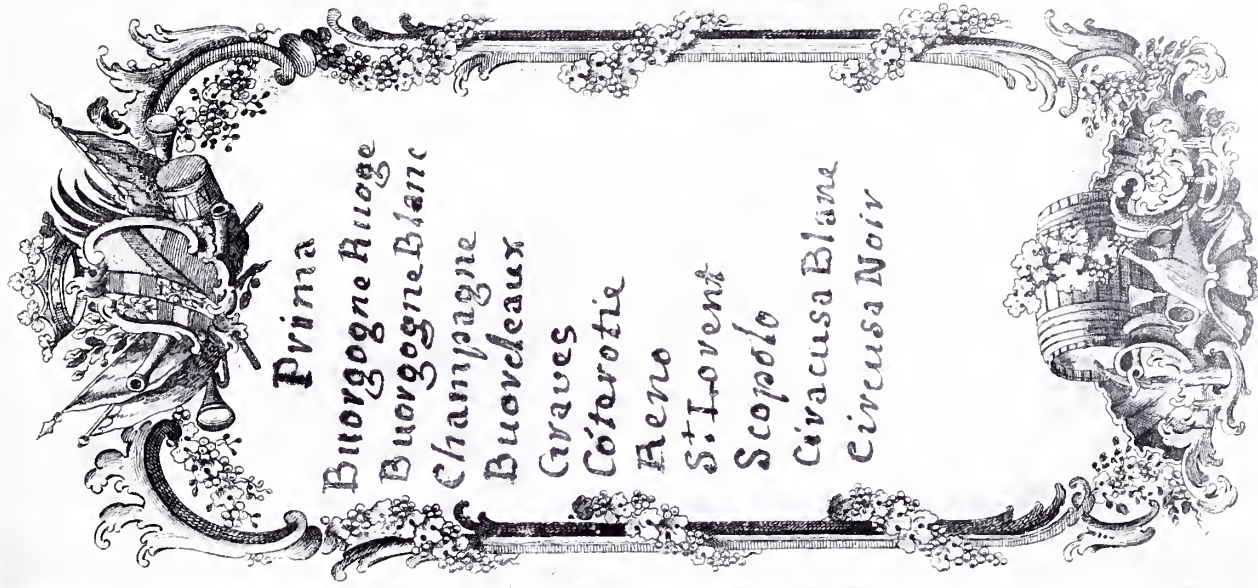 Prima
Buorgogne Ruoge
Buorgogne Blanc
Champagne
Buordeaux
Graves
Côterotie
Reno
St. Lorent
Scopolo
Ciracusa Blanc
Circusa Noir